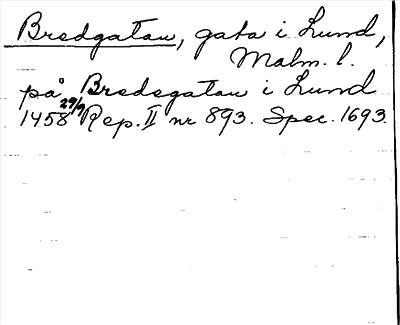 Bredgatan, gata i Lund,
Malm. l.
på Bredegatan i Lund
1458 29/9 Rep. II nr 893. Spec. 1693.